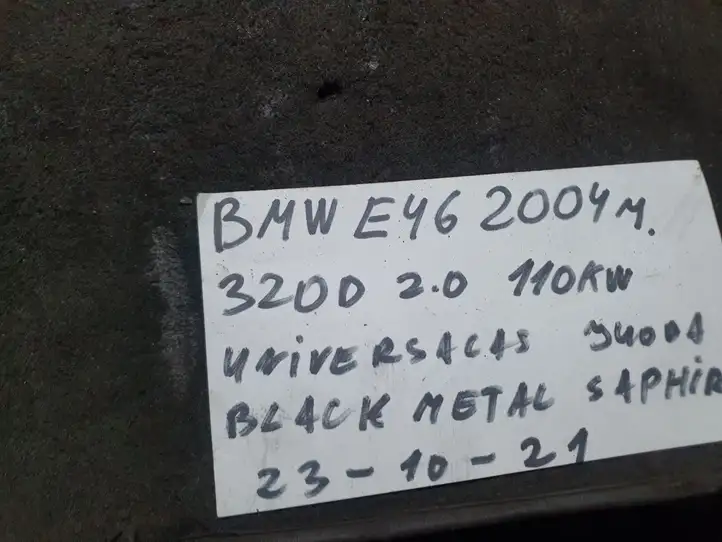 BMW E46 2004 m.
320D 2.0 110KW
UNIVERSALAS JUODA
BLACK METAL SAPHIR
23-10-21